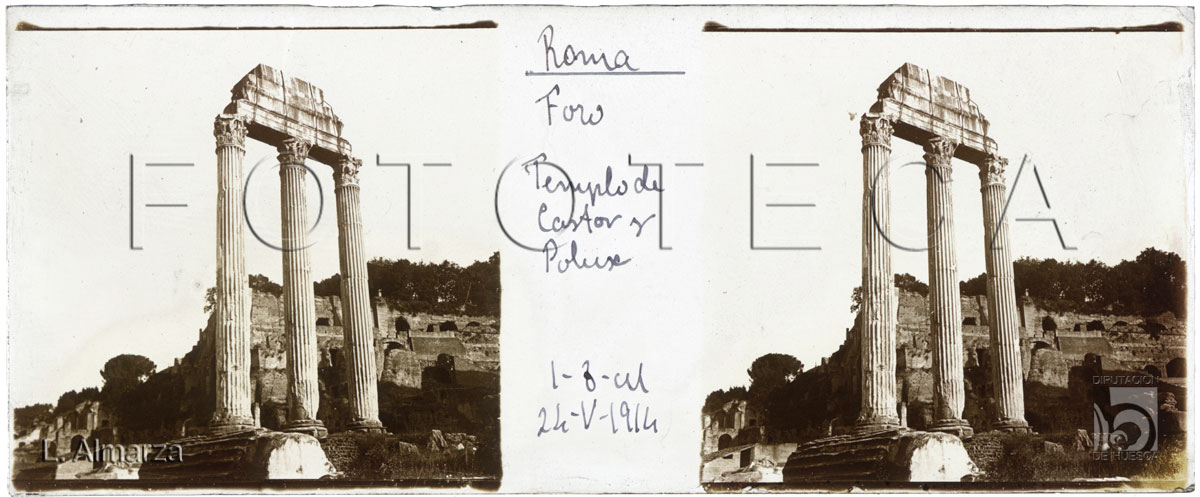 Roma
Foro
FOTOTECA
Templo de
Castor y
Polux
24-V-1914
L. Almarza
DIPUTACIÓN
DE HUESCA